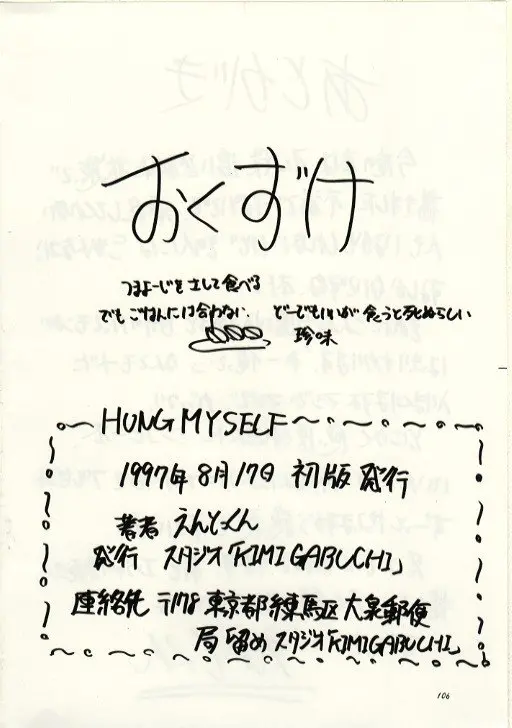 おくずけ
つまよーじをさして食べる
でもごはんには合わない。 どーでもいいが食うと死ぬらしい
珍味
HUNG MYSELF
1997年8月17日 初版発行
著者 えんどっくん
発行 スタジオ「KIMIGABUCHI」
連絡先 〒178 東京都練馬区大泉郵便
局留め スタジオ「KIMIGABUCHI」
106